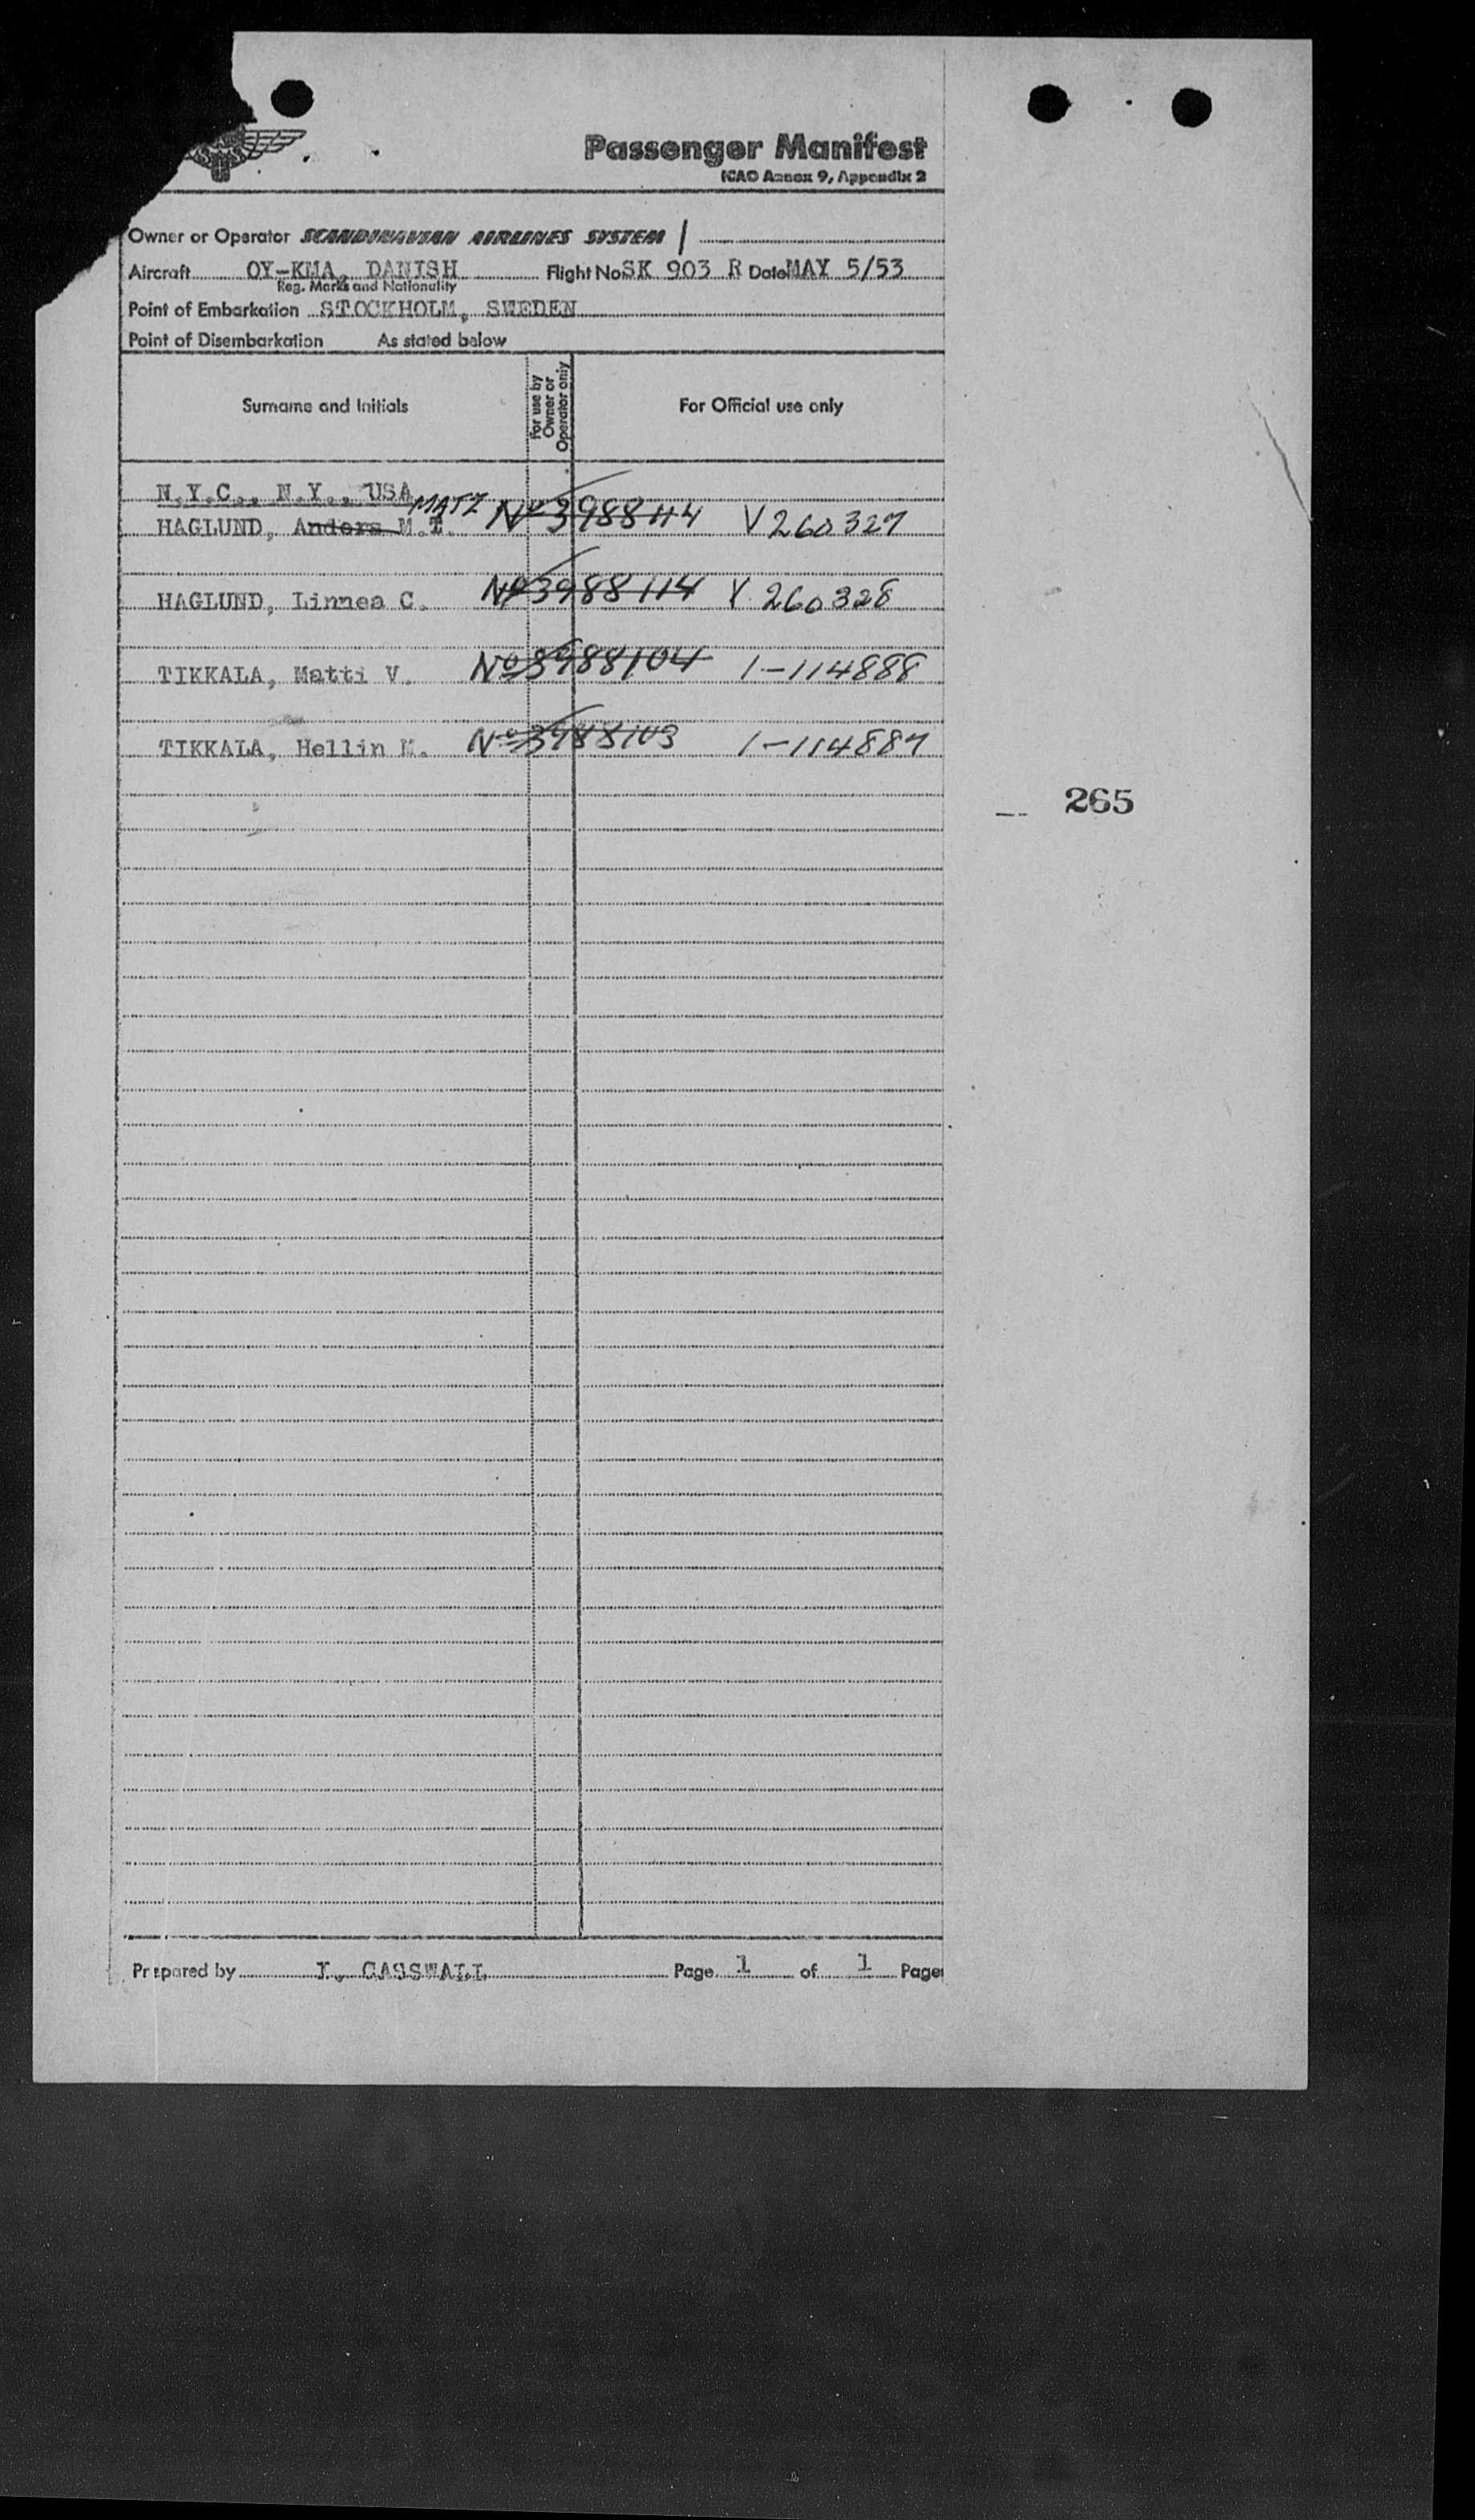 Passenger Manifest
ICAO Annex 9, Appendix 2
Owner or Operator SCANDINAVIAN AIRLINES SYSTEM
Aircraft OY-KMA, DANISH Flight No SK 903 R Date MAY 5/53
Reg. Marks and Nationality
Point of Embarkation STOCKHOLM, SWEDEN
Point of Disembarkation As stated below
Surname and Initials For use by Owner or Operator only For Official use only
N.Y.C., N.Y., USA
MATZ
HAGLUND, Anders M.T. No 3988114 V 260327
HAGLUND, Linnea C. No 3988114 V 260328
TIKKALA, Matti V. No 3988104 1-114888
TIKKALA, Hellin M. No 3988103 1-114887
265
Prepared by I. CASSWALL Page 1 of 1 Page